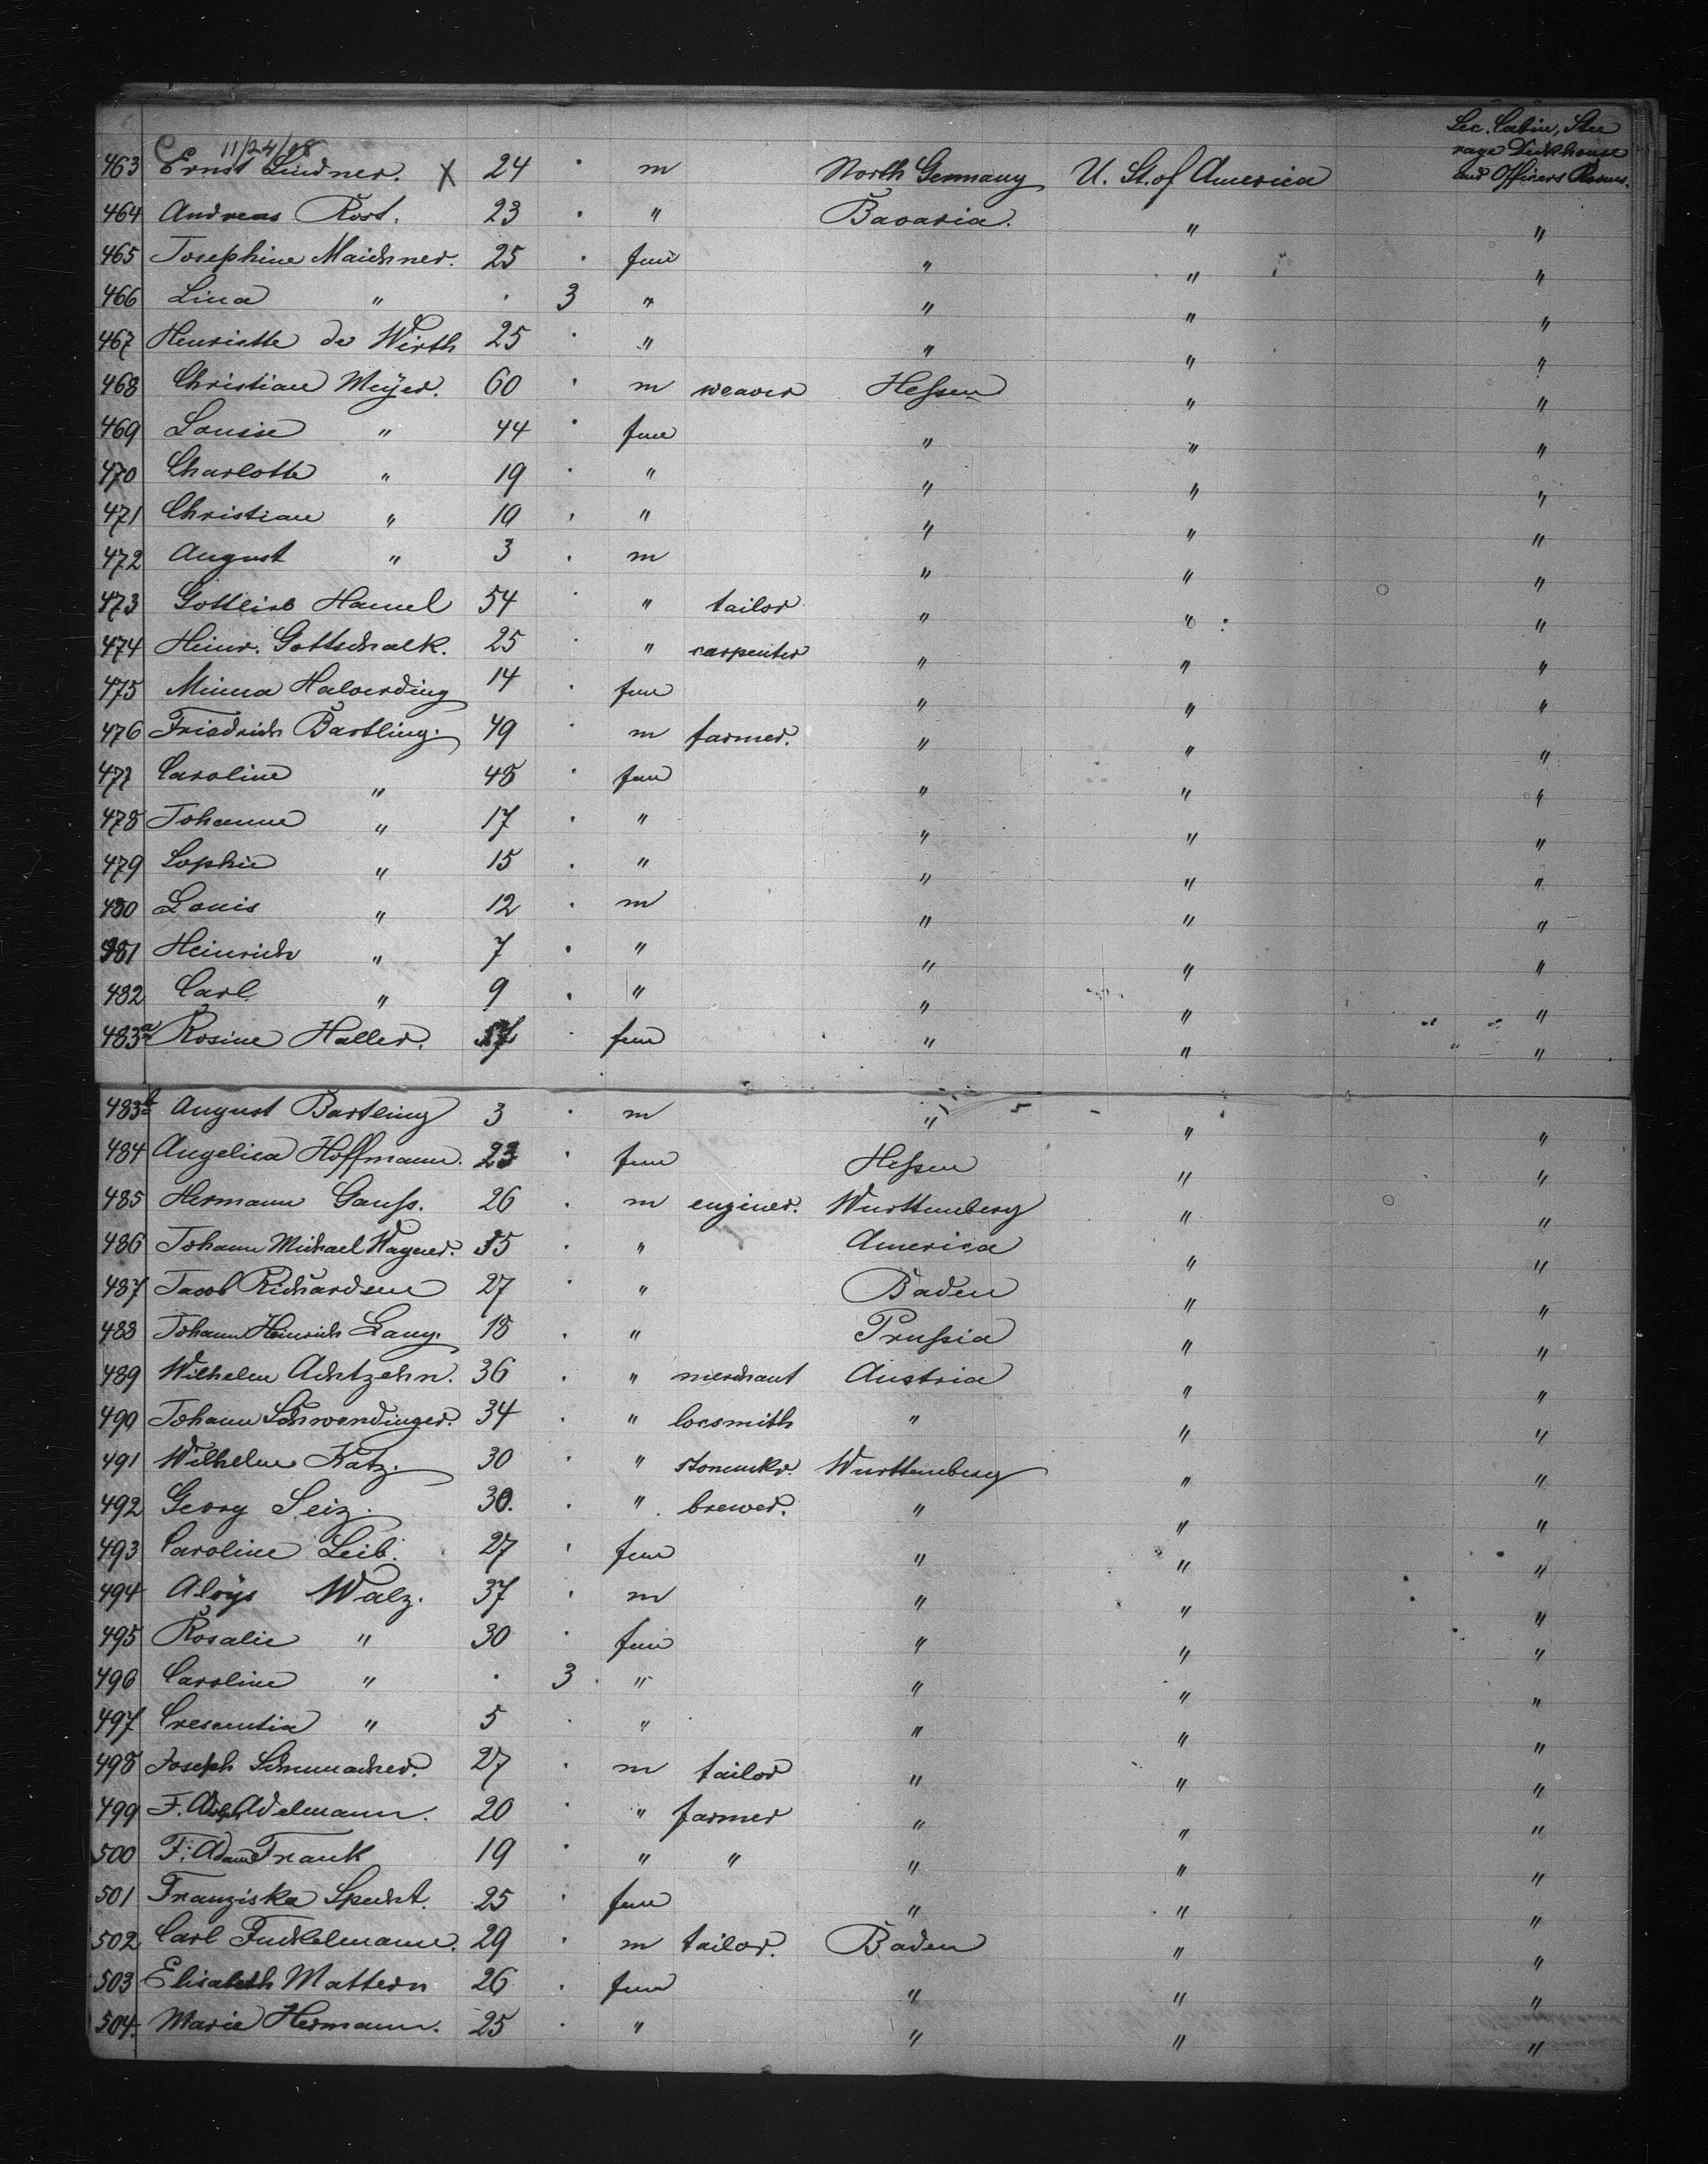 Sec. Cabin, Stee
rage Deckhouse
and Officers Rooms.
11/24/08
463 Ernst Lindner. X 24 · m North Germany U. St. of America
464 Andreas Rost. 23 · " Bavaria. " "
465 Josephine Maichner. 25 · fem " " "
466 Lina " · 3 " " " "
467 Henriette de Wirth 25 · " " " "
468 Christian Meÿer. 60 · m weaver Hessen " "
469 Louise " 44 · fem " " "
470 Charlotte " 19 · " " " "
471 Christian " 10 · " " " "
472 August " 3 · m " " "
473 Gottlieb Hamel 54 · " tailor " " "
474 Heinr. Gottschalk. 25 · " carpenter " " "
475 Minna Halverding 14 · fem " " "
476 Friedrich Bartling. 49 · m farmer. " " "
477 Caroline " 48 · fem " " "
478 Johanne " 17 · " " " "
479 Sophie " 15 · " " " "
480 Louis " 12 · m " " "
481 Heinrich " 7 · " " " "
482 Carl " 9 · " " " "
483a Rosine Haller. 57 · fem " " "
483b August Bartling 3 · m " " "
484 Angelica Hoffmann. 23 · fem Hessen " "
485 Hermann Gauss. 26 · m enginer. Wurttemberg " "
486 Johann Michael Wagner. 35 · " America " "
487 Jacob Richardsen 27 · " Baden " "
488 Johann Heinrich Lang. 18 · " Prussia " "
489 Wilhelm Achtzehn. 36 · " merchant Austria " "
490 Johann Schwendinger. 34 · " locsmith " " "
491 Wilhelm Katz. 30 · " Wurttemberg " "
492 Georg Seiz. 30. · " brewer. " " "
493 Caroline Leib. 27 · fem " " "
494 Aloÿs Walz. 37 · m " " "
495 Rosalie " 30 · fem " " "
496 Caroline " · 3 · " " " "
497 Crescentia " 5 · " " " "
498 Joseph Schumacher. 27 · m tailor " " "
499 F. Adelmann. 20 · " farmer " " "
500 F. Adam Frank 19 · " " " " "
501 Franziska Specht. 25 · fem " " "
502 Carl Funkelmann. 29 · m tailor. Baden " "
503 Elisabeth Mattern 26 · fem " " "
504. Marie Hermann. 25 · " " " "